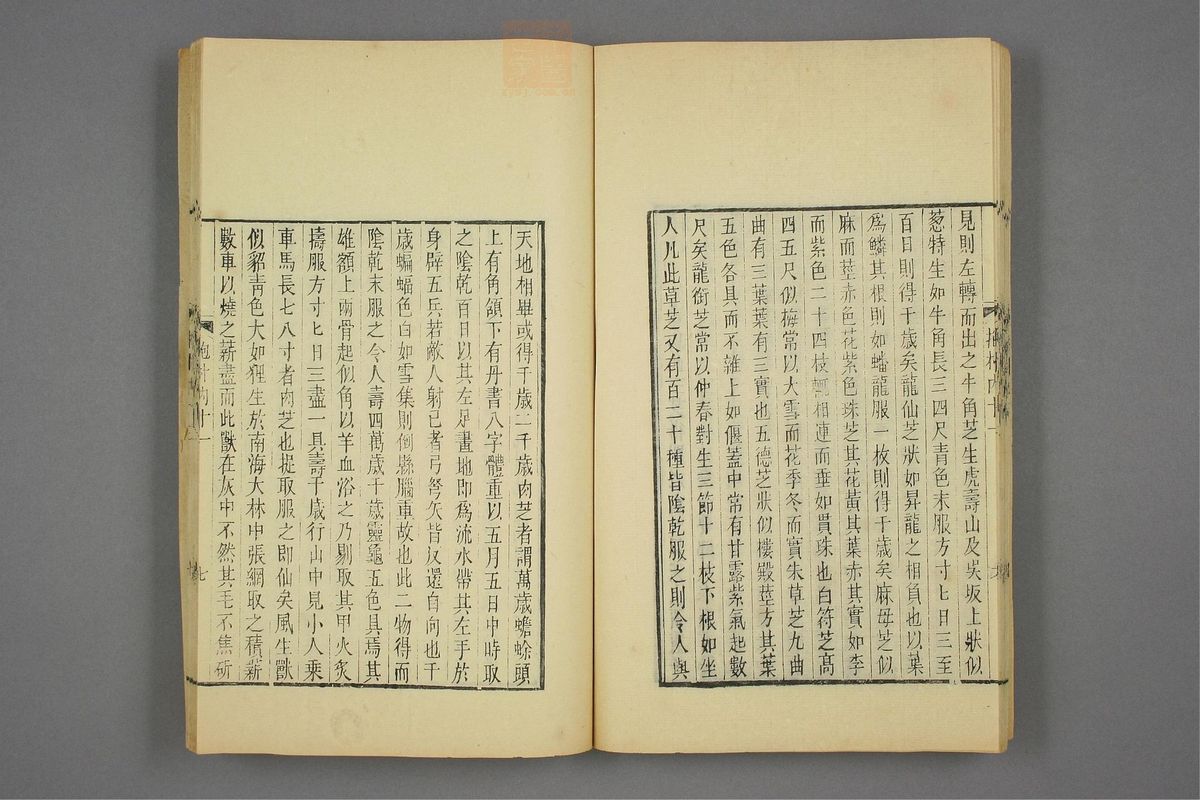 見則左轉而出之牛角芝生虎壽山及吳坂上狀似
葱特生如牛角長三四尺青色末服方寸匕日三至
百日則得千歲矣龍仙芝狀如昇龍之相負也以葉
爲鱗其根則如蟠龍服一枚則得千歲矣麻母芝似
麻而莖赤色花紫色珠芝其花黃其葉赤其實如李
而紫色二十四枝輒相連而垂如貫珠也白符芝高
四五尺似梅常以大雪而花季冬而實朱草芝九曲
曲有三葉葉有三實也五德芝狀似樓殿莖方其葉
五色各具而不雜上如偃蓋中常有甘露紫氣起數
尺矣龍銜芝常以仲春對生三節十二枝下根如坐
人凡此草芝又有百二十種皆陰乾服之則令人與
天地相畢或得千歲二千歲肉芝者謂萬歲蟾蜍頭
上有角頷下有丹書八字體重以五月五日中時取
之陰乾百日以其左足畫地即爲流水帶其左手於
身辟五兵若敵人射己者弓弩矢皆反還自向也千
歲蝙蝠色白如雪集則倒縣腦重故也此二物得而
陰乾末服之令人壽四萬歲千歲靈龜五色具焉其
雄額上兩骨起似角以羊血浴之乃剔取其甲火炙
擣服方寸匕日三盡一具壽千歲行山中見小人乘
車馬長七八寸者肉芝也捉取服之即仙矣風生獸
似貂青色大如狸生於南海大林中張網取之積薪
數車以燒之薪盡而此獸在灰中不然其毛不焦斫
抱朴内十一
七